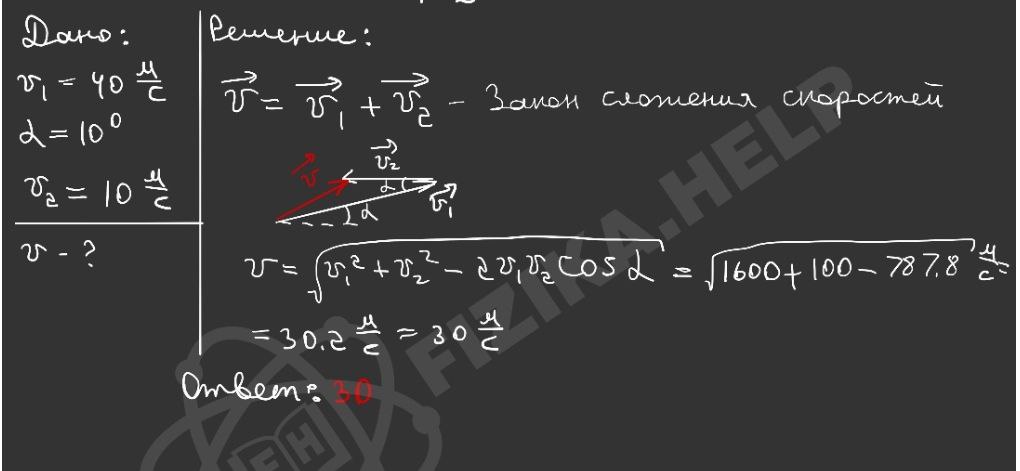 Дано:
v₁ = 40 м/с
α = 10⁰
v₂ = 10 м/с
v - ?
Решение:
v⃗ = v⃗₁ + v⃗₂ - Закон сложения скоростей
v⃗ v⃗₂ α v⃗₁ α
v = √(v₁² + v₂² - 2v₁v₂cos α) = √(1600 + 100 - 787.8) м/с =
= 30.2 м/с ≈ 30 м/с
Ответ: 30
FIZIKA.HELP
FH